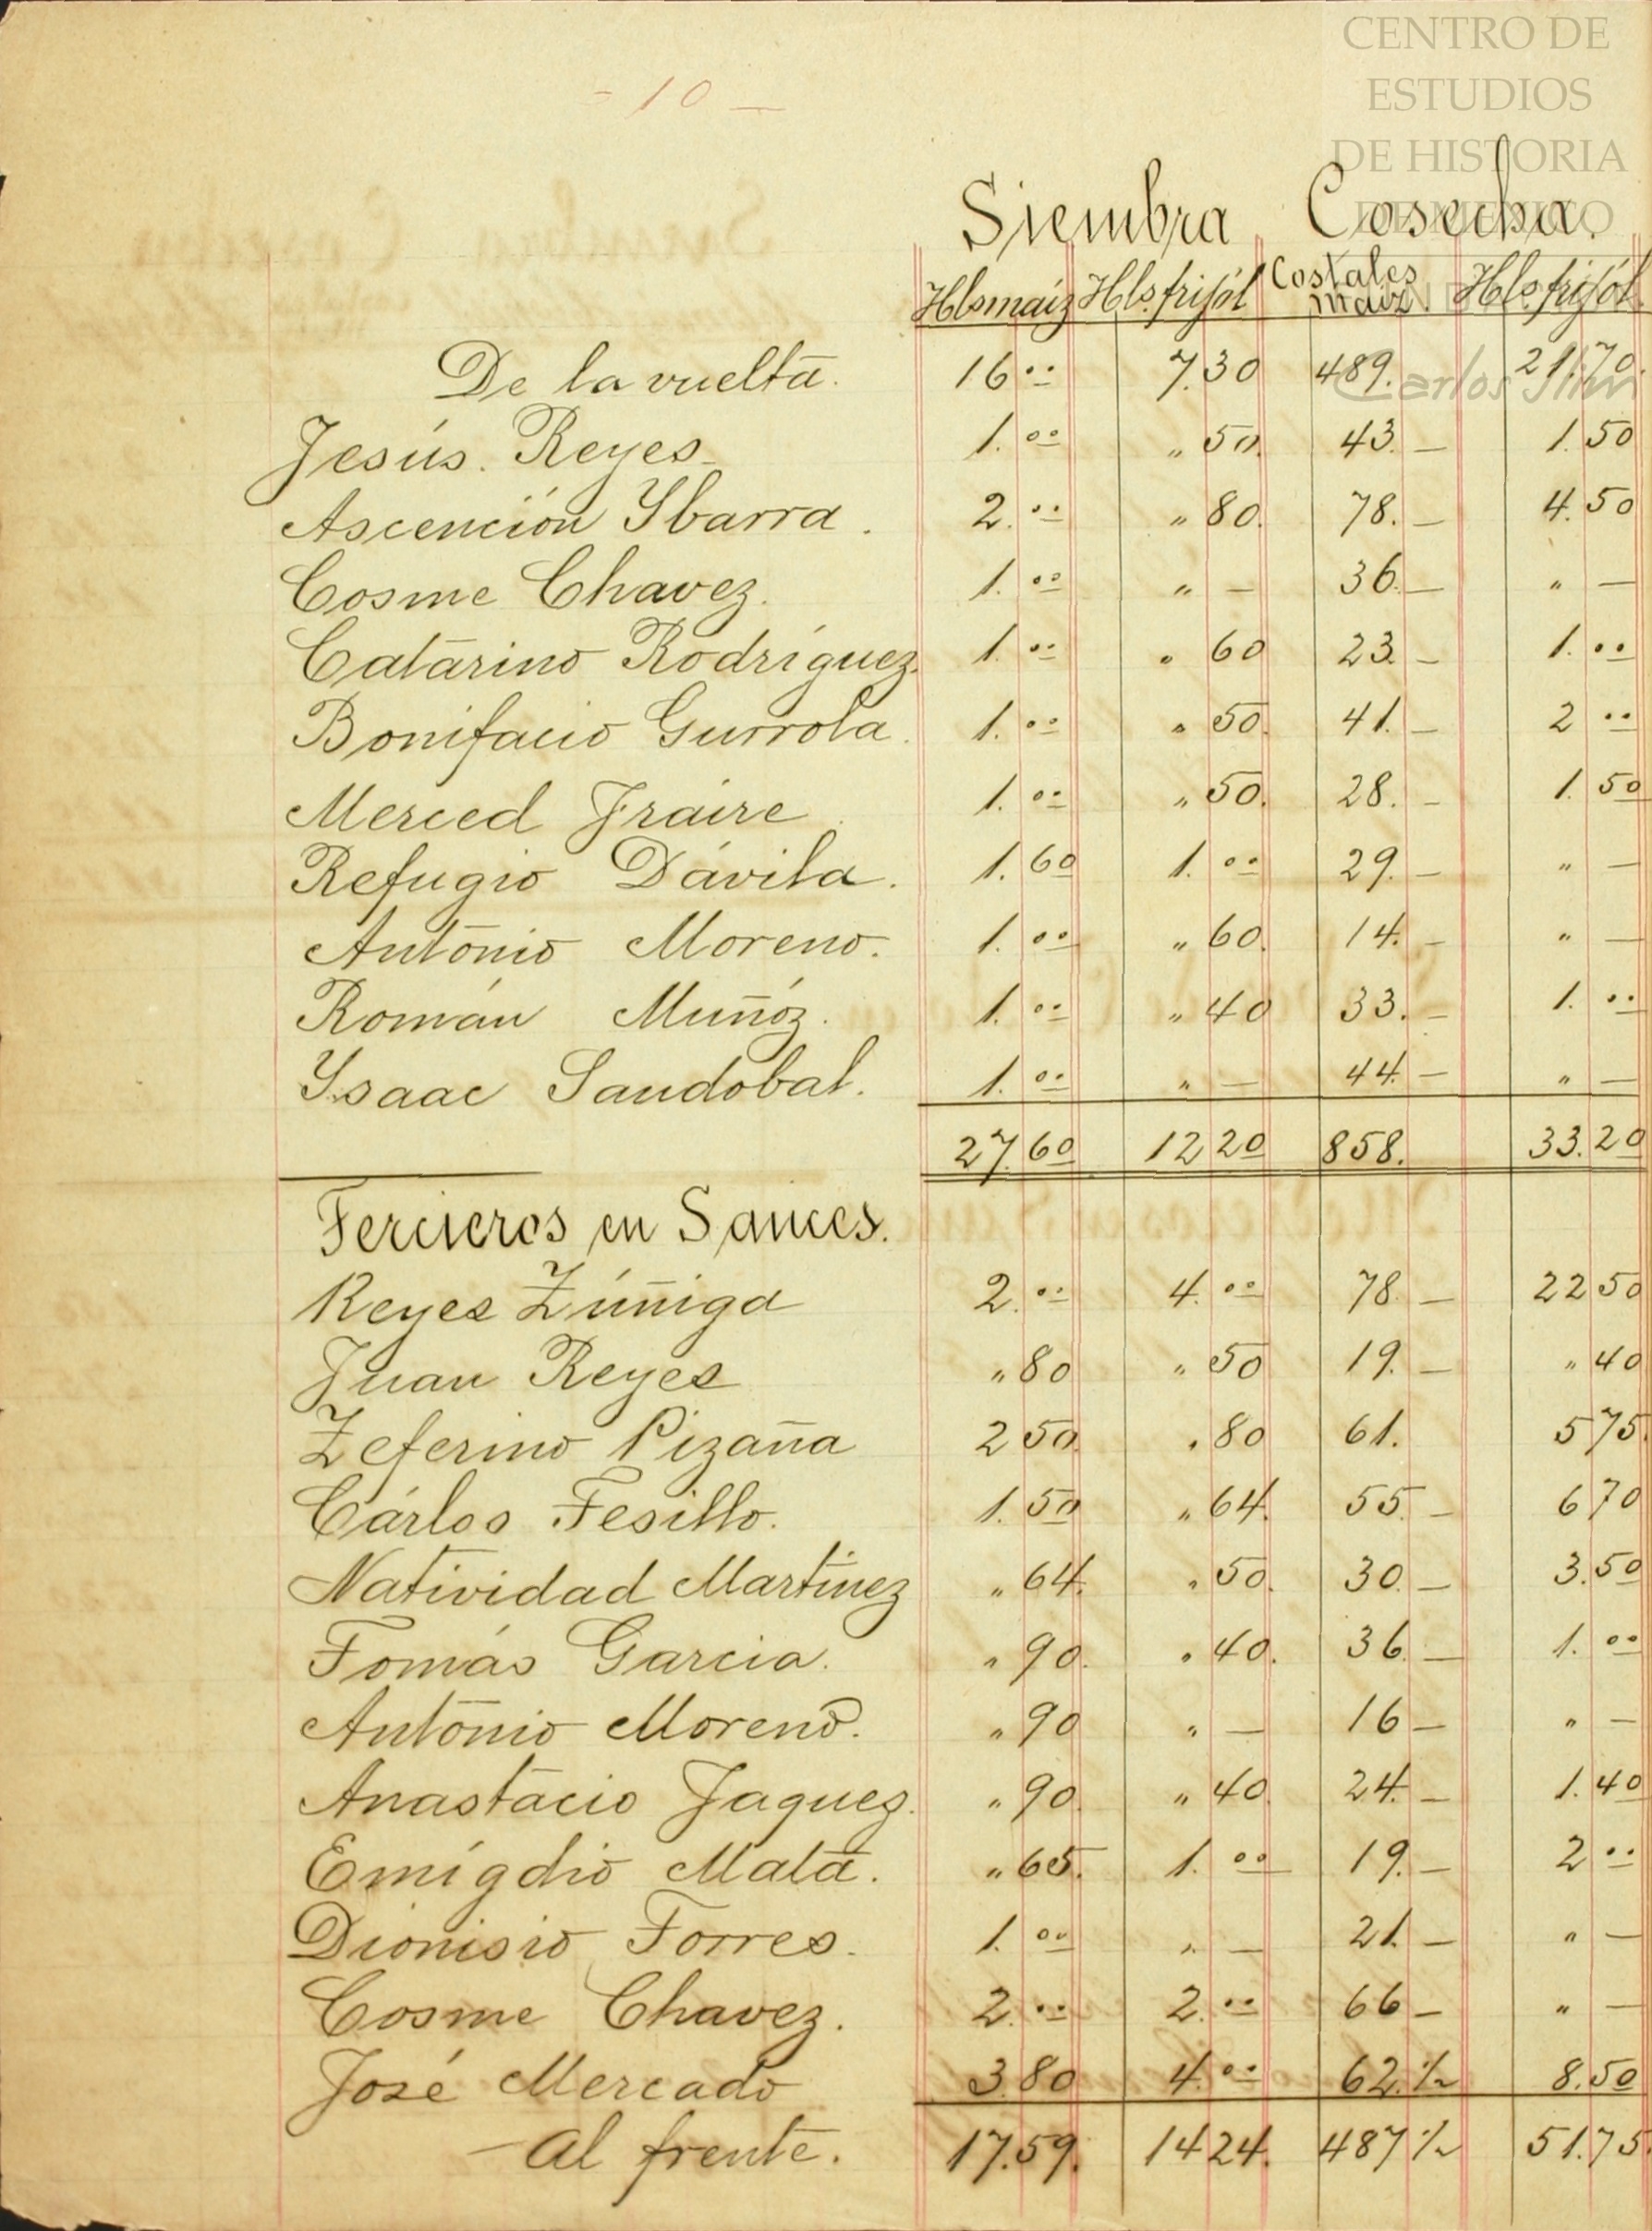 CENTRO DE
ESTUDIOS
DE HISTORIA
DE MEXICO
Carlos Slim
- 10 -
Siembra Cosecha.
Hls maíz Hls. frijól Costales maíz. Hls. frijól.
De la vuelta. 16 00 7.30 489. 21.70.
Jesús. Reyes 1. 00 " 50. 43. — 1. 50
Ascención Ybarra. 2. 00 " 80. 78. — 4. 50
Cosme Chavez. 1. 00 " — 36. — " —
Catarino Rodríguez. 1. 00 " 60 23. — 1. 00
Bonifacio Gurrola. 1. 00 " 50. 41. — 2 00
Merced Fraire. 1. 00 " 50. 28. — 1. 50
Refugio Dávila. 1. 60 1. 00 29. — " —
Antonio Moreno. 1. 00 " 60. 14. — " —
Román Muñóz. 1. 00 " 40 33. — 1. 00
Ysaac Sandobal. 1. 00 " — 44. — " —
27. 60 12 20 858. 33. 20
Tercieros en Sauces.
Reyes Zúñiga 2. 00 4. 00 78. — 22 50
Juan Reyes " 80 " 50 19. — " 40
Zeferino Pizaña 2 50. " 80 61. 5 75.
Cárlos Tesillo. 1. 50 " 64. 55. — 6 70
Natividad Martinez " 64. " 50. 30. — 3. 50
Tomás Garcia. " 90. " 40. 36. — 1. 00
Antonio Moreno. " 90 " — 16 — " —
Anastacio Jaquez. " 90. " 40. 24. — 1. 40
Emígdio Mata. " 65. 1. 00 19. — 2 00
Dionisio Torres. 1. 00 " — 21. — " —
Cosme Chavez. 2. 00 2. 00 66 — " —
José Mercado 3. 80 4. 00 62. ½ 8. 50
— Al frente. 17. 59. 14 24. 487 ½ 51. 75.